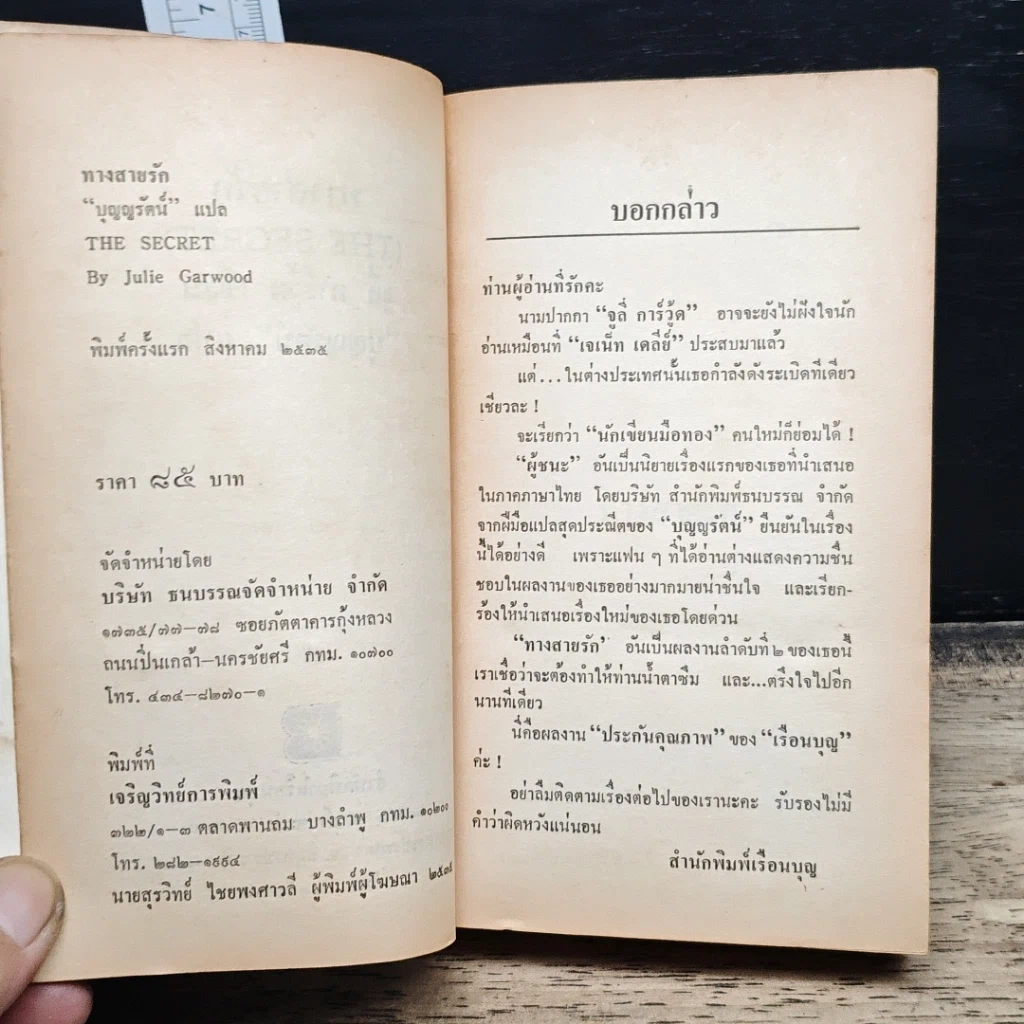 7
7
ทางสายรัก
“บุญญรัตน์” แปล
THE SECRET
By Julie Garwood
พิมพ์ครั้งแรก สิงหาคม ๒๕๓๕
ราคา ๘๕ บาท
จัดจำหน่ายโดย
บริษัท ธนบรรณจัดจำหน่าย จำกัด
๑๗๓๕/๗๗–๗๘ ซอยภัตตาคารกุ้งหลวง
ถนนปิ่นเกล้า–นครชัยศรี กทม. ๑๐๗๐๐
โทร. ๔๓๔–๘๒๗๐–๑
พิมพ์ที่
เจริญวิทย์การพิมพ์
๓๒๒/๑–๓ ตลาดพานถม บางลำพู กทม. ๑๐๒๐๐
โทร. ๒๘๒–๑๙๙๔
นายสุรวิทย์ ไชยพงศาวลี ผู้พิมพ์ผู้โฆษณา ๒๕๓๕
บอกกล่าว
ท่านผู้อ่านที่รักคะ
นามปากกา “จูลี่ การ์วู้ด” อาจจะยังไม่ฝังใจนัก
อ่านเหมือนที่ “เจเน็ท เดลีย์” ประสบมาแล้ว
แต่...ในต่างประเทศนั้นเธอกำลังดังระเบิดทีเดียว
เชียวละ !
จะเรียกว่า “นักเขียนมือทอง” คนใหม่ก็ย่อมได้ !
“ผู้ชนะ” อันเป็นนิยายเรื่องแรกของเธอที่นำเสนอ
ในภาคภาษาไทย โดยบริษัท สำนักพิมพ์ธนบรรณ จำกัด
จากฝีมือแปลสุดประณีตของ “บุญญรัตน์” ยืนยันในเรื่อง
นี้ได้อย่างดี เพราะแฟน ๆ ที่ได้อ่านต่างแสดงความชื่น
ชอบในผลงานของเธออย่างมากมายน่าชื่นใจ และเรียก-
ร้องให้นำเสนอเรื่องใหม่ของเธอโดยด่วน
“ทางสายรัก’ อันเป็นผลงานลำดับที่ ๒ ของเธอนี้
เราเชื่อว่าจะต้องทำให้ท่านน้ำตาซึม และ...ตรึงใจไปอีก
นานทีเดียว
นี่คือผลงาน “ประกันคุณภาพ” ของ “เรือนบุญ”
ค่ะ !
อย่าลืมติดตามเรื่องต่อไปของเรานะคะ รับรองไม่มี
คำว่าผิดหวังแน่นอน
สำนักพิมพ์เรือนบุญ